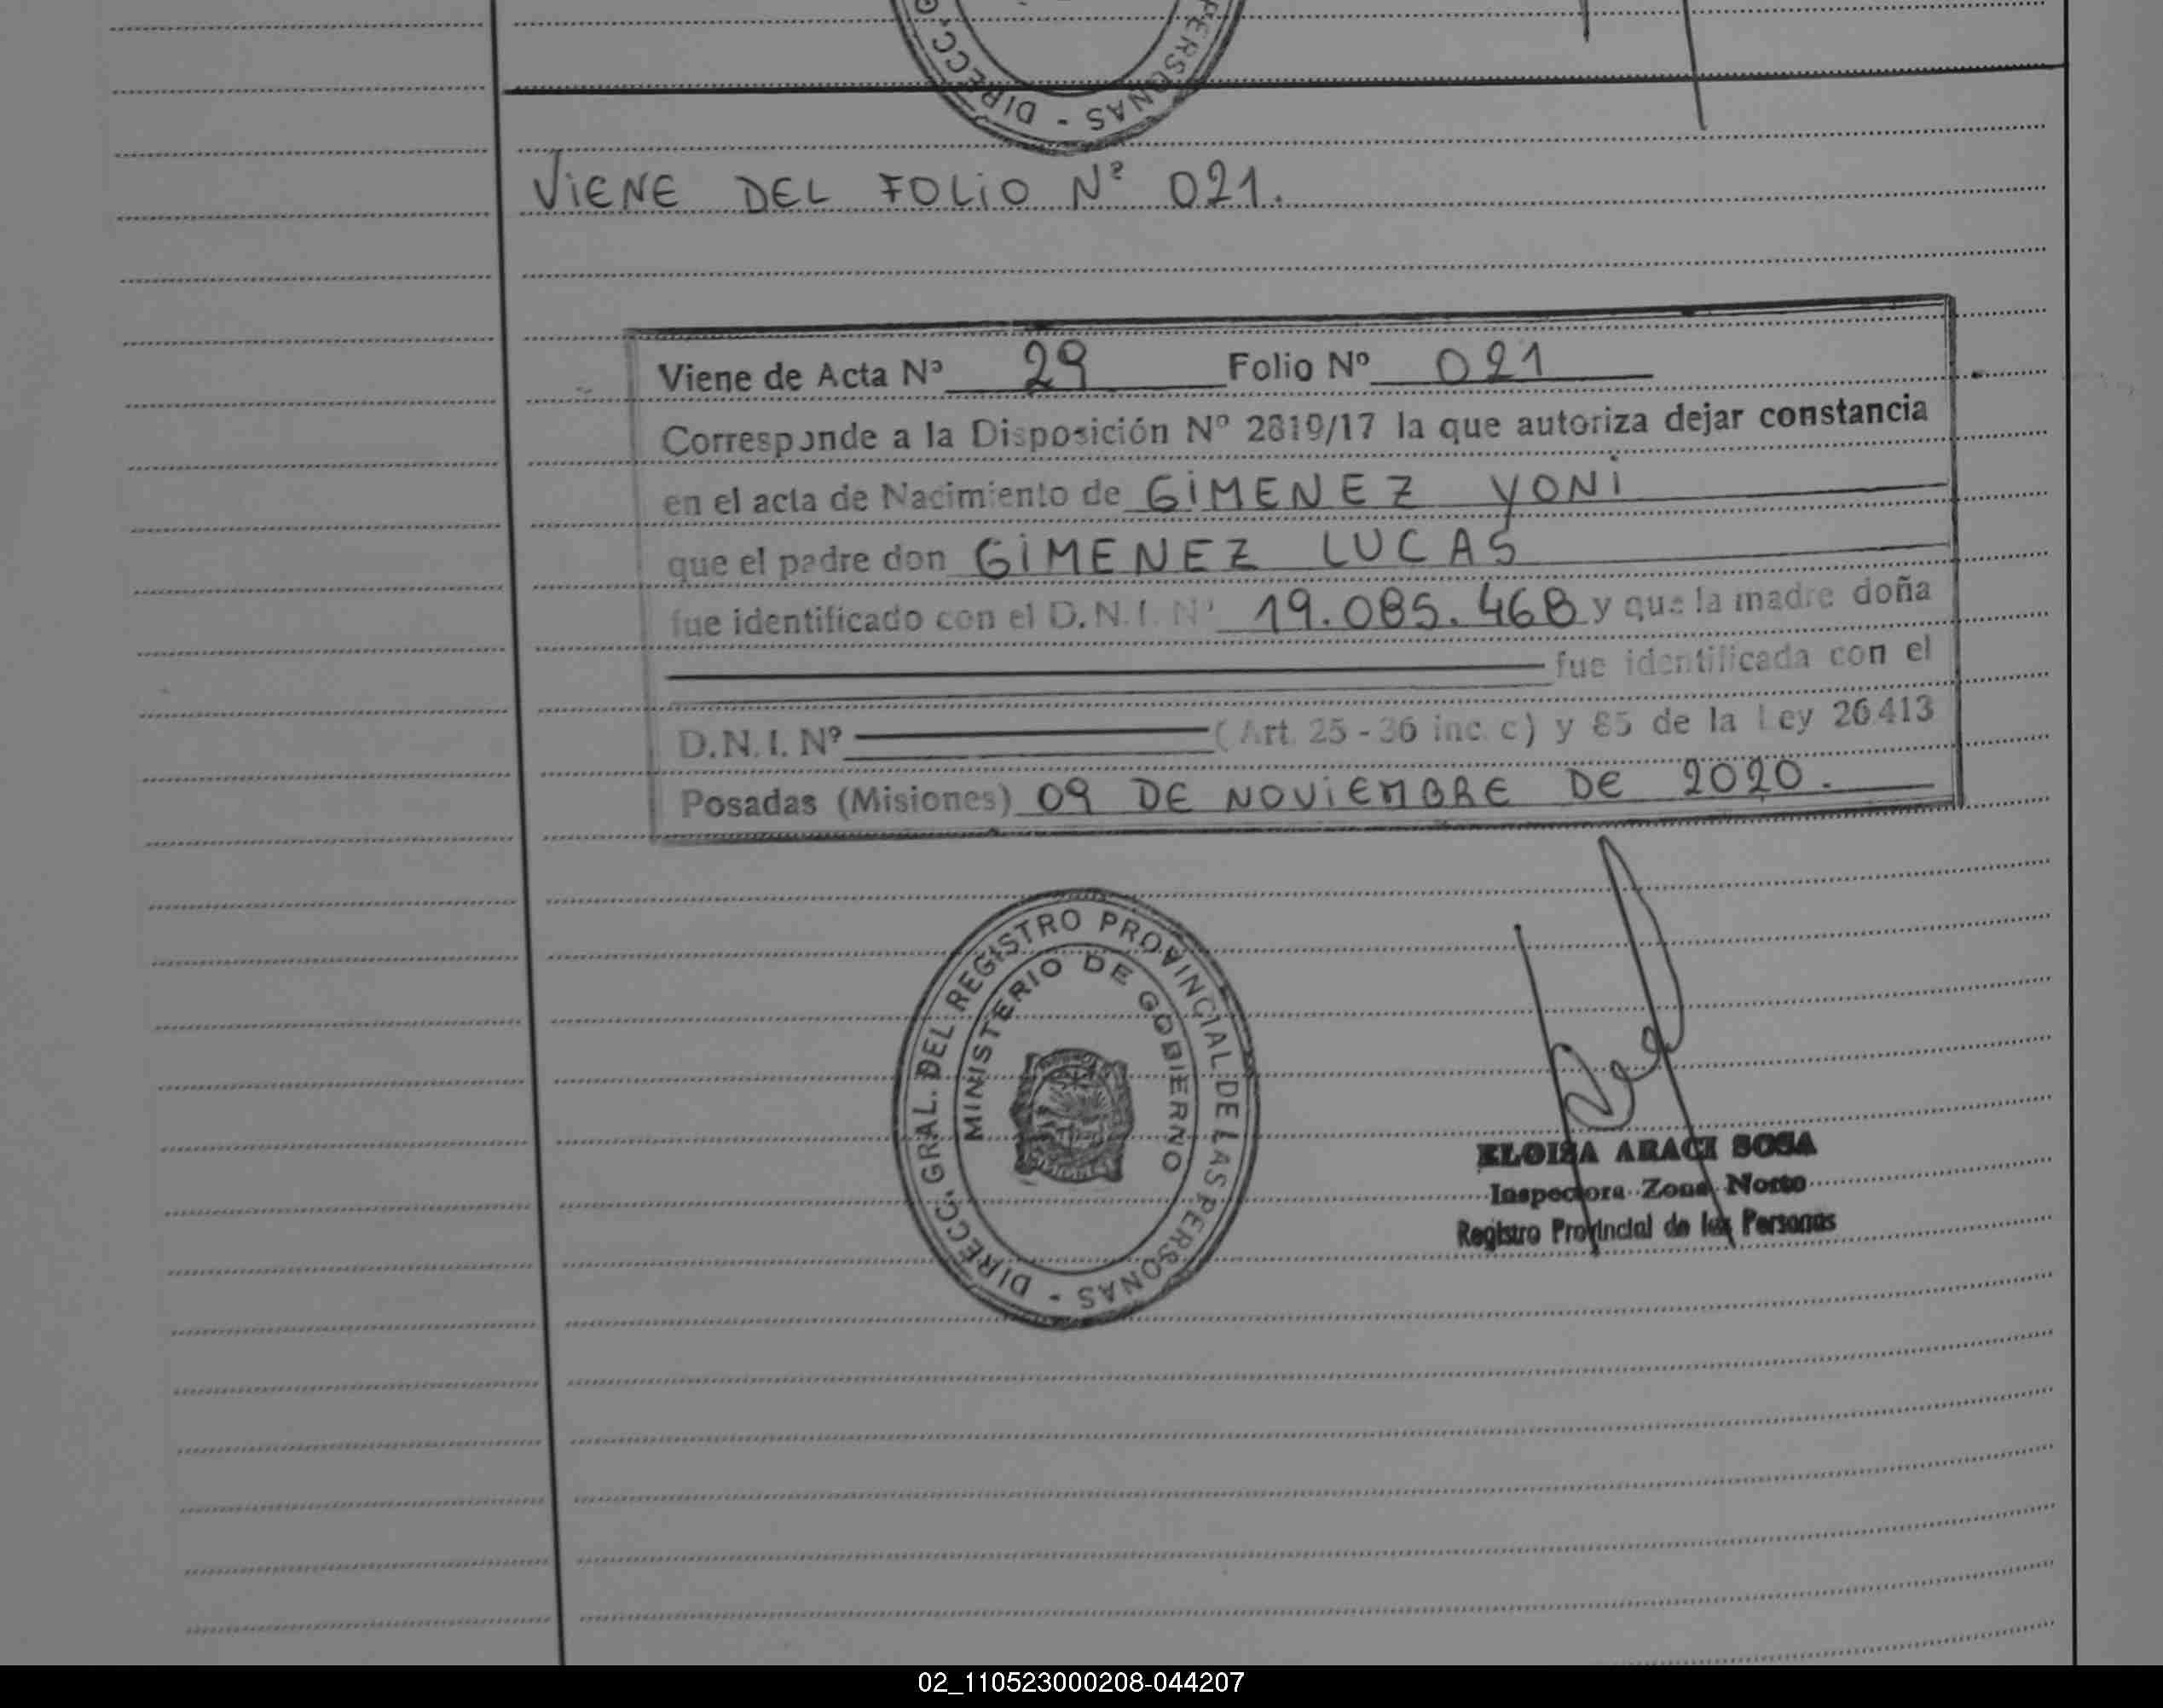 VIENE DEL FOLIO Nº 021.
Viene de Acta Nº 29 Folio Nº 021
Corresponde a la Disposición Nº 2819/17 la que autoriza dejar constancia
en el acta de Nacimiento de GIMENEZ YONI
que el padre don GIMENEZ LUCAS
fue identificado con el D.N.I. Nº 19.085.468 y que la madre doña
fue identificada con el
D.N.I. Nº (Art. 25 - 36 inc. c) y 85 de la Ley 26.413
Posadas (Misiones) 09 DE NOVIEMBRE DE 2020.
DIRECC. GRAL. DEL REGISTRO PROVINCIAL DE LAS PERSONAS -
MINISTERIO DE GOBIERNO
ELOISA ARACI SOSA
Inspectora Zona Norte
Registro Provincial de las Personas
02_110523000208-044207